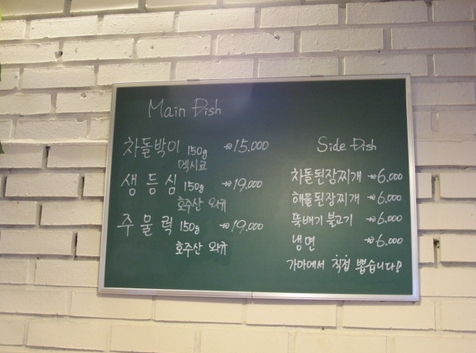 Main Dish
차돌박이 150g ₩15,000
멕시코
생등심 150g ₩19,000
호주산 와규
주물럭 150g ₩19,000
호주산 와규
Side Dish
차돌된장찌개 ₩6,000
해물된장찌개 ₩6,000
뚝배기 불고기 ₩6,000
냉면 ₩6,000
가마에서 직접 뽑습니다!